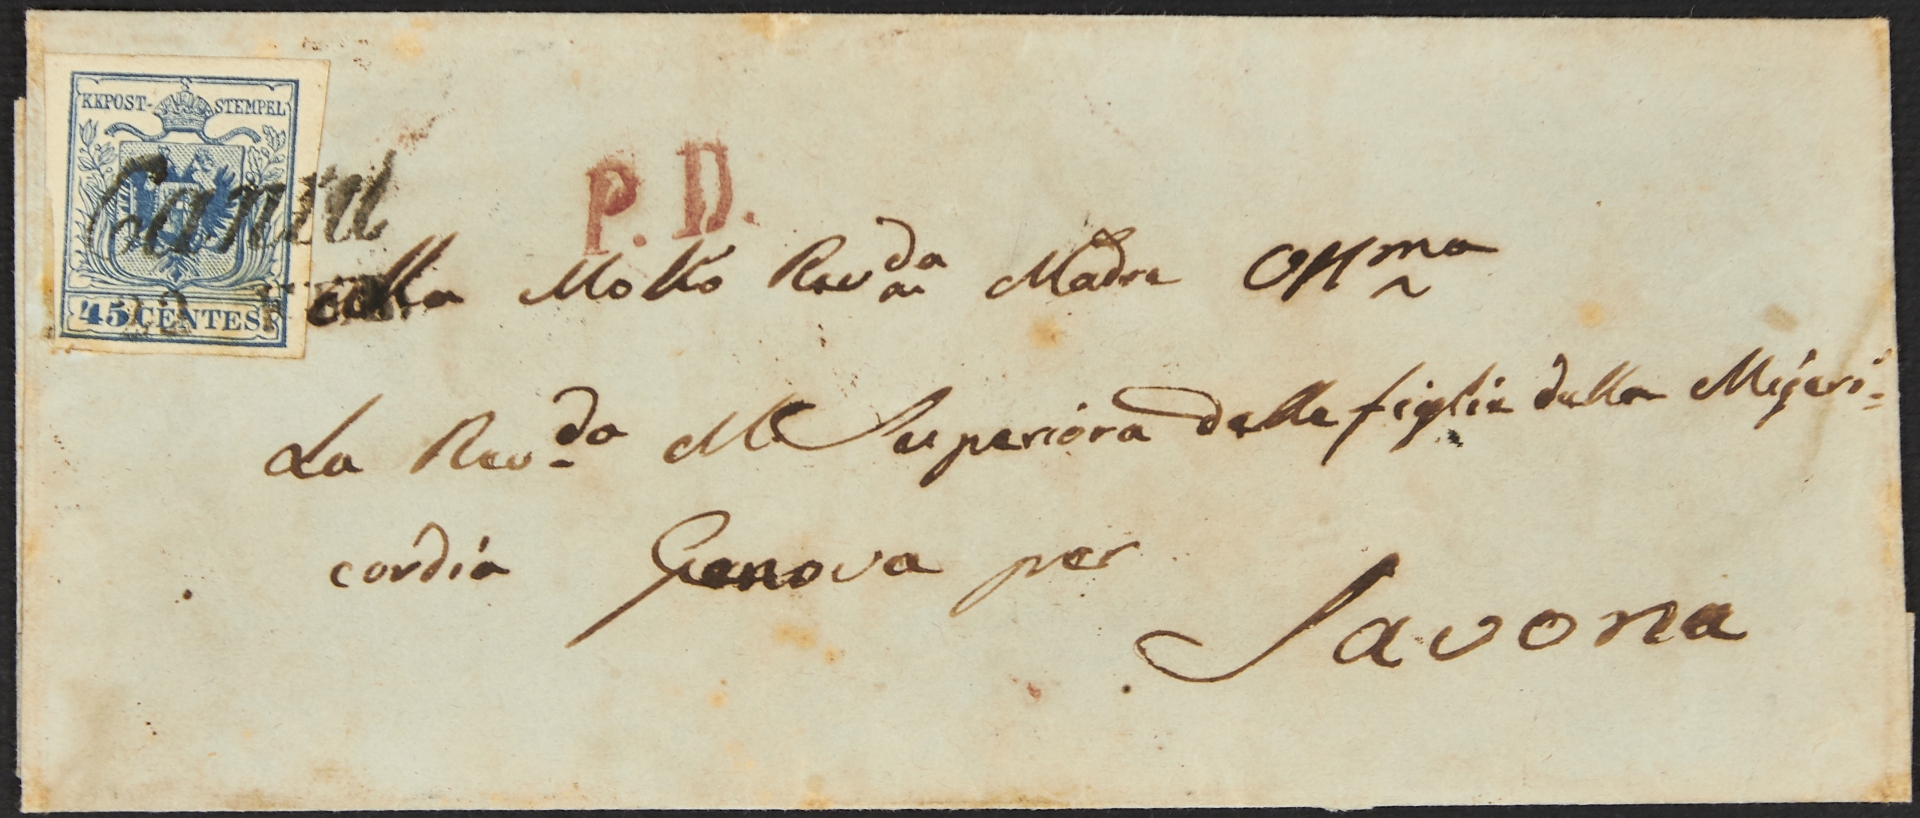 KKPOST-STEMPEL
Cantù
45 CENTES
P. D.
Alla Molto Revda Madre Ottma
La Revda M Superióra delle figlie della Miseri-
cordia Genova per
Savona